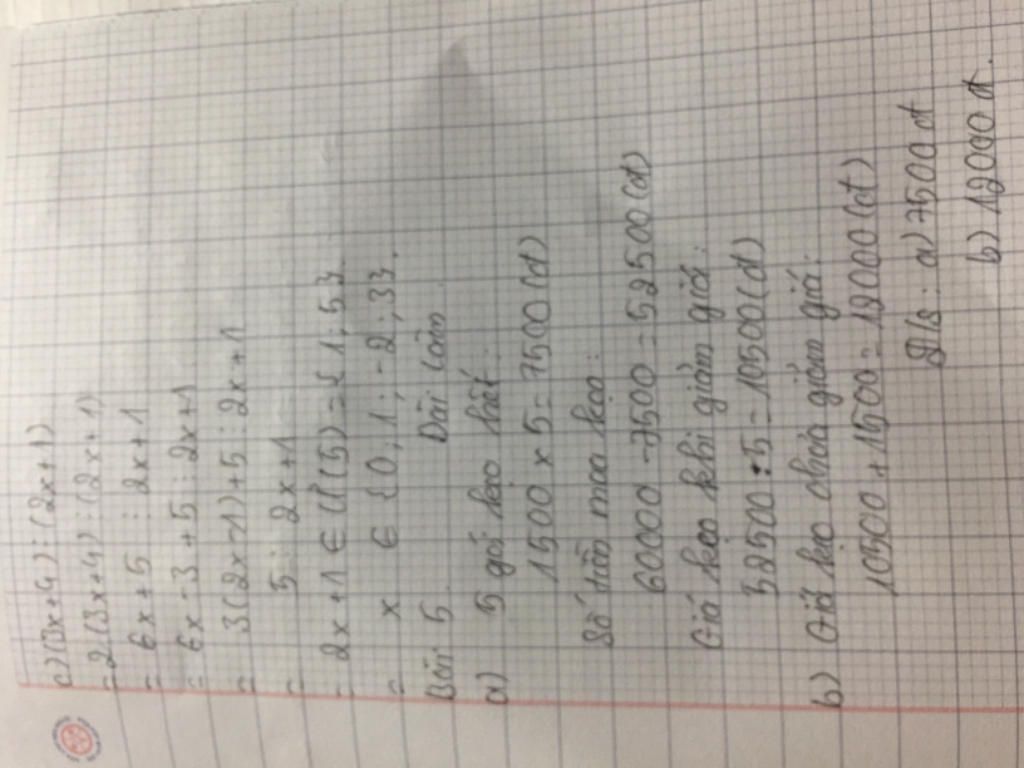 c) (3x+4) : (2x+1)
= 2(3x+4) : (2x+1)
= 6x+5 : 2x+1
= 6x-3+5 : 2x+1
= 3(2x-1)+5 : 2x+1
= 5 : 2x+1
= 2x+1 ∈ Ư(5) = {1; 5}
= x ∈ {0; 1; -2; 3}.
Bài 5. Bài làm
a) 5 gói kẹo hết:
1500 x 5 = 7500 (đ)
Số tiền mua kẹo:
60000 - 7500 = 52500 (đ)
Giá kẹo khi giảm giá:
52500 : 5 = 10500 (đ)
b) Giá kẹo chưa giảm giá:
10500 + 1500 = 12000 (đ)
Đ/s: a) 7500 đ
b) 12000 đ.